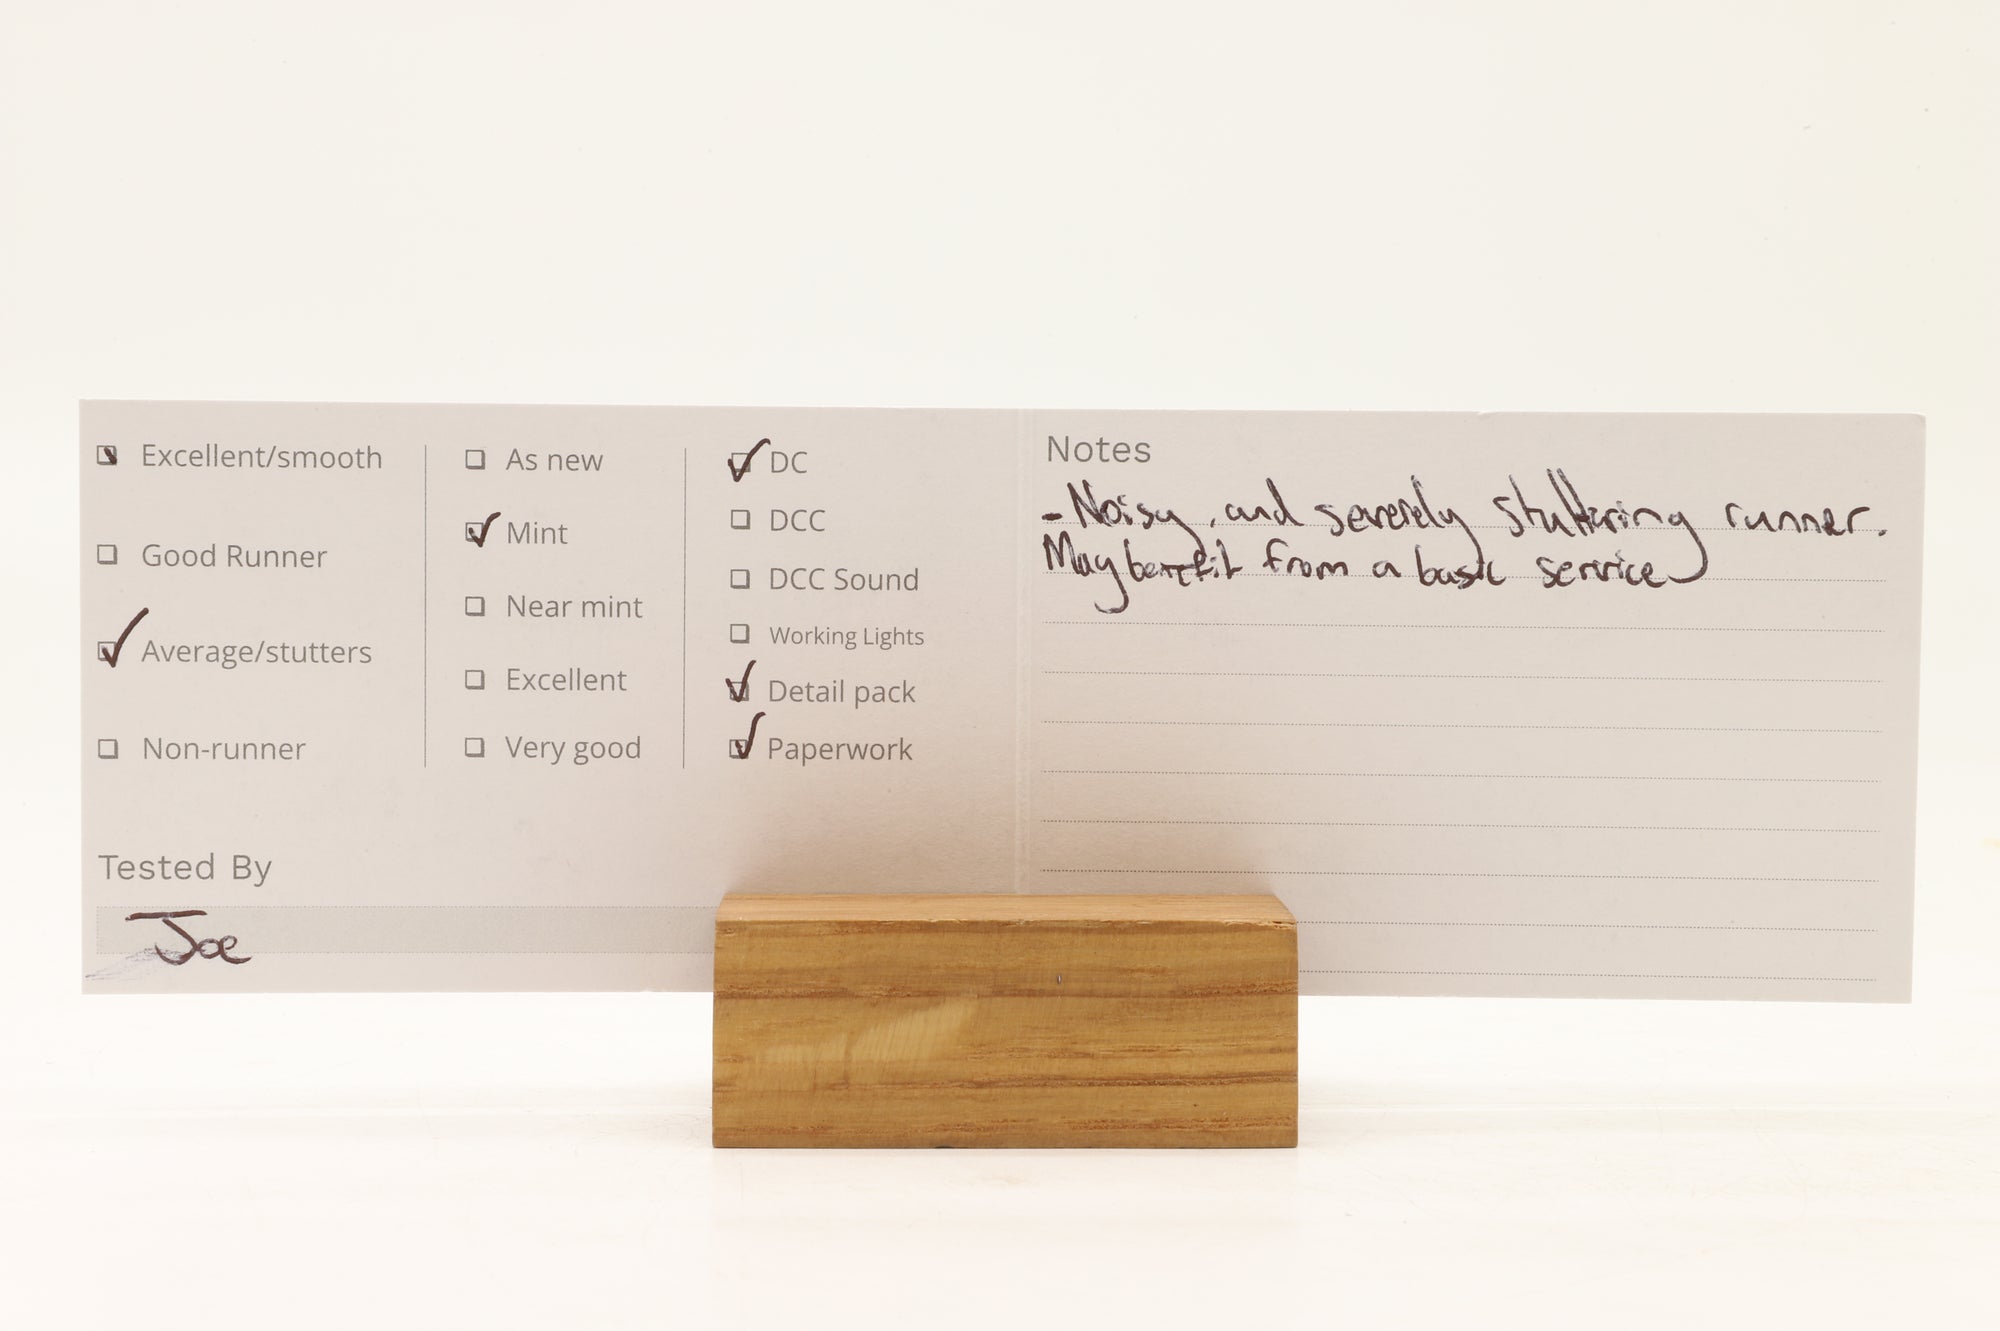 Excellent/smooth
Good Runner
Average/stutters
Non-runner
As new
Mint
Near mint
Excellent
Very good
DC
DCC
DCC Sound
Working Lights
Detail pack
Paperwork
Tested By
Joe
Notes
- Noisy, and severely stuttering runner.
May benefit from a basic service